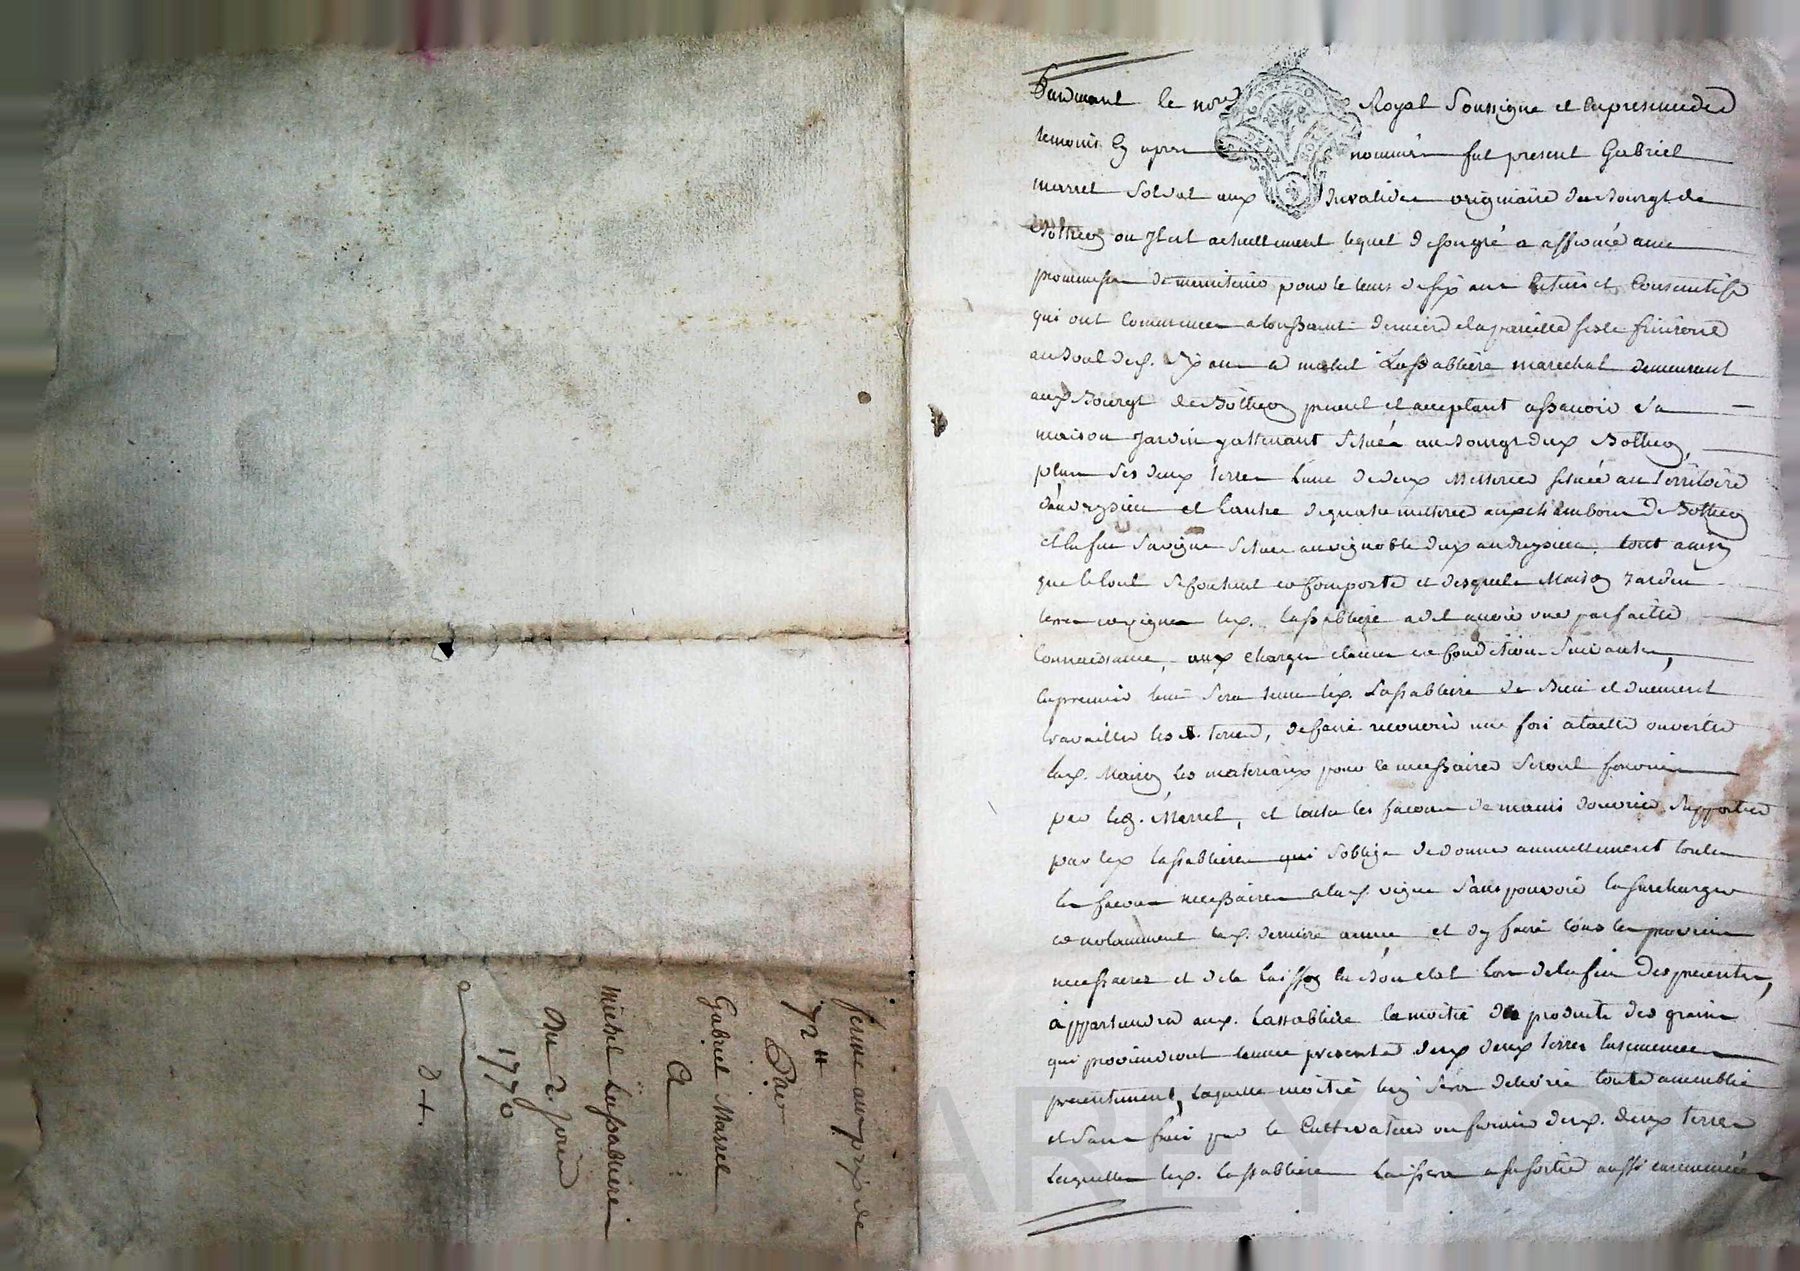 Pardevant le no.re Royal Soussigné et en presence des
temoins cy apres nommés fut present Gabriel
Marrel Soldat aux Invalides originaire du Bourgt de
Bothéon ou Il est actuellement lequel de son gré a affermé avec
promesse de maintenir pour le tems de six ans entiers et Consecutifs
qui ont Commencés a toussaint dernier et a pareille feste finiront
au bout desd. six ans a michel Lassabliere marechal demeurant
aud Bourgt de Bothéon present et acceptant assavoir Sa
maison Jardin y attenant Situés au Bourgt dud Bothéon,
plus Ses deux terres l'une de deux Metterées située au territoire
et L'autre de quatre metterées aux chambons de Bothéon
et enfin Sa vigne Située au vignoble dud andrezieu, tout ainsy
que le tout se Contient et Comporte et desquels Maison Jardin
terres et vigne led. Lassabliere a dit avoir une parfaitte
Connoissance, aux charges clauses et Conditions Suivantes,
en premier lieu Sera tenu led. Lassabliere de Bien et duement
travailler lesd. terres, de faire recouvrir une fois a taille ouverte
lad. Maison les materiaux pour ce necessaires Seront fournis
par led. Marrel, et toutes les facons de mains d'ouvrier Supportées
par led Lassabliere qui S'oblige de donner annuellement toutes
les facons necessaires a lad. vigne Sans pouvoir la Surcharger
et notamment lad. derniere année et d'y faire tous les provins
necessaires et de la laisser en Bon etat lors de la fin des presentes,
appartiendra aud. Lassabliere la moitié du produit des grains
qui proviendront l'année presente desd deux terres Ensemencées
presentement, Laquelle moitié luy Sera delivrée toutte
et Sans frais par le Cultivateur ou fermier desd. deux terres
Lesquelles led. Lassabliere Laissera a sa sortie aussi ensemencées
ferme au prix de
72 ₶
Par
Gabriel Marrel
A
Michel Lassabliere
Du 2. Juin
1770